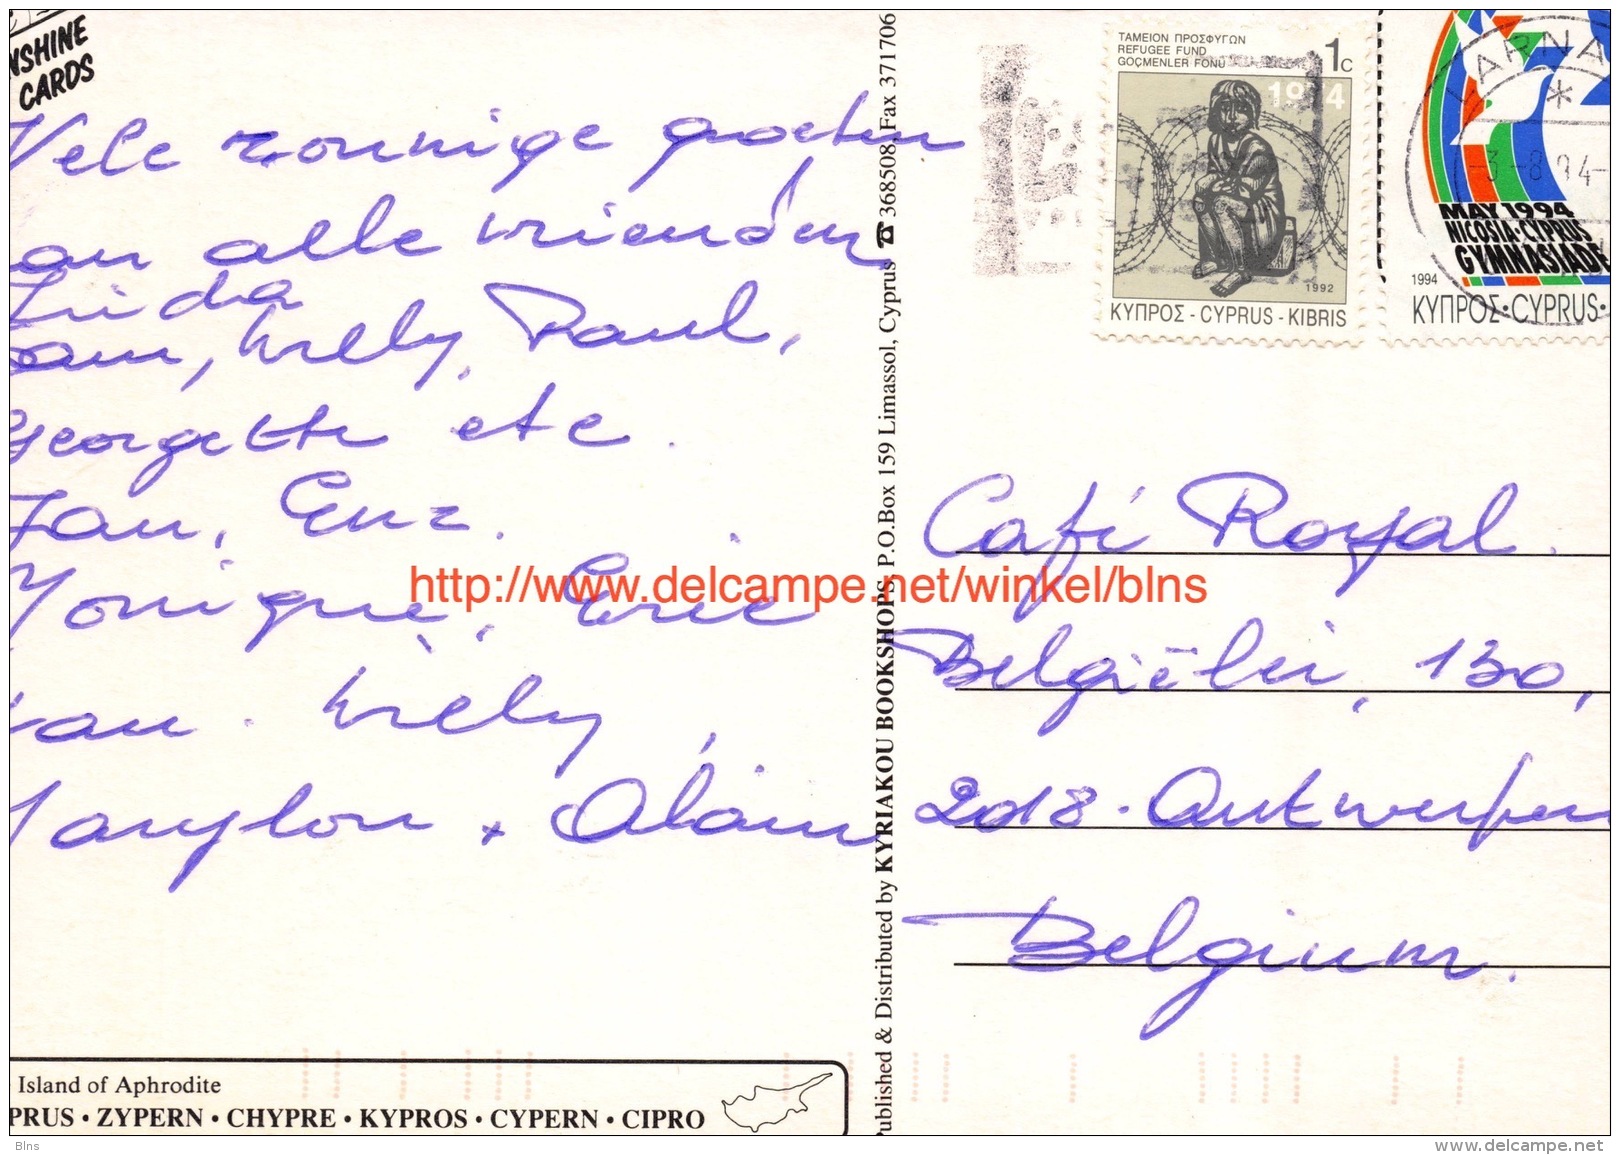 NSHINE
CARDS
Vele zonnige groeten
aan alle vrienden
Linda
Willy, Paul,
Georgette etc.
Jan, Enz.
Monique, Eric
Willy,
Marylou + Alain
Island of Aphrodite
PRUS • ZYPERN • CHYPRE • KYPROS • CYPERN • CIPRO
Published & Distributed by KYRIAKOU BOOKSHOPS P.O.Box 159 Limassol, Cyprus ☎ 368508 Fax 371706
ΤΑΜΕΙΟΝ ΠΡΟΣΦΥΓΩΝ
REFUGEE FUND
GOÇMENLER FONU
1c
1974
1992
ΚΥΠΡΟΣ - CYPRUS - KIBRIS
LARNA
3-8 94-
MAY 1994
NICOSIA • CYPRUS
GYMNASIADE
1994
ΚΥΠΡΟΣ•CYPRUS•
Café Royal.
Belgiëlei, 130,
2018 - Antwerpen
Belgium.
http://www.delcampe.net/winkel/blns
Blns
www.delcampe.net